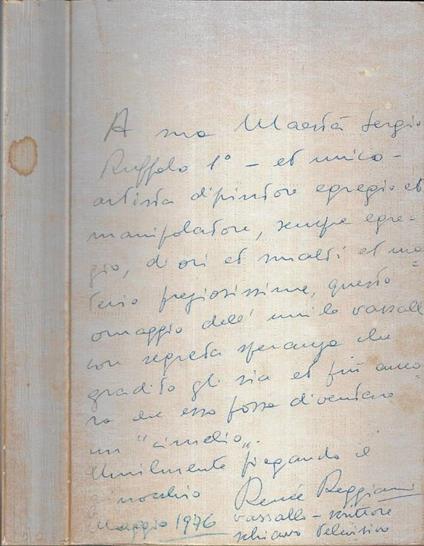 A sua Maestà Sergio
Ruffolo 1° - et unico -
artista dipintore egregio et
manipolatore, sempre egre-
gio, di ori et smalti et ma=
terie pregiosissime, questo
omaggio dell' umile vassallo
con segreta speranza che
gradito gli sia et fin anco=
ra che esso possa diventare
un "cimelio".
Umilmente piegando il
ginocchio
Renée Reggiani
Maggio 1976
vassallo - scrittore
schiavo